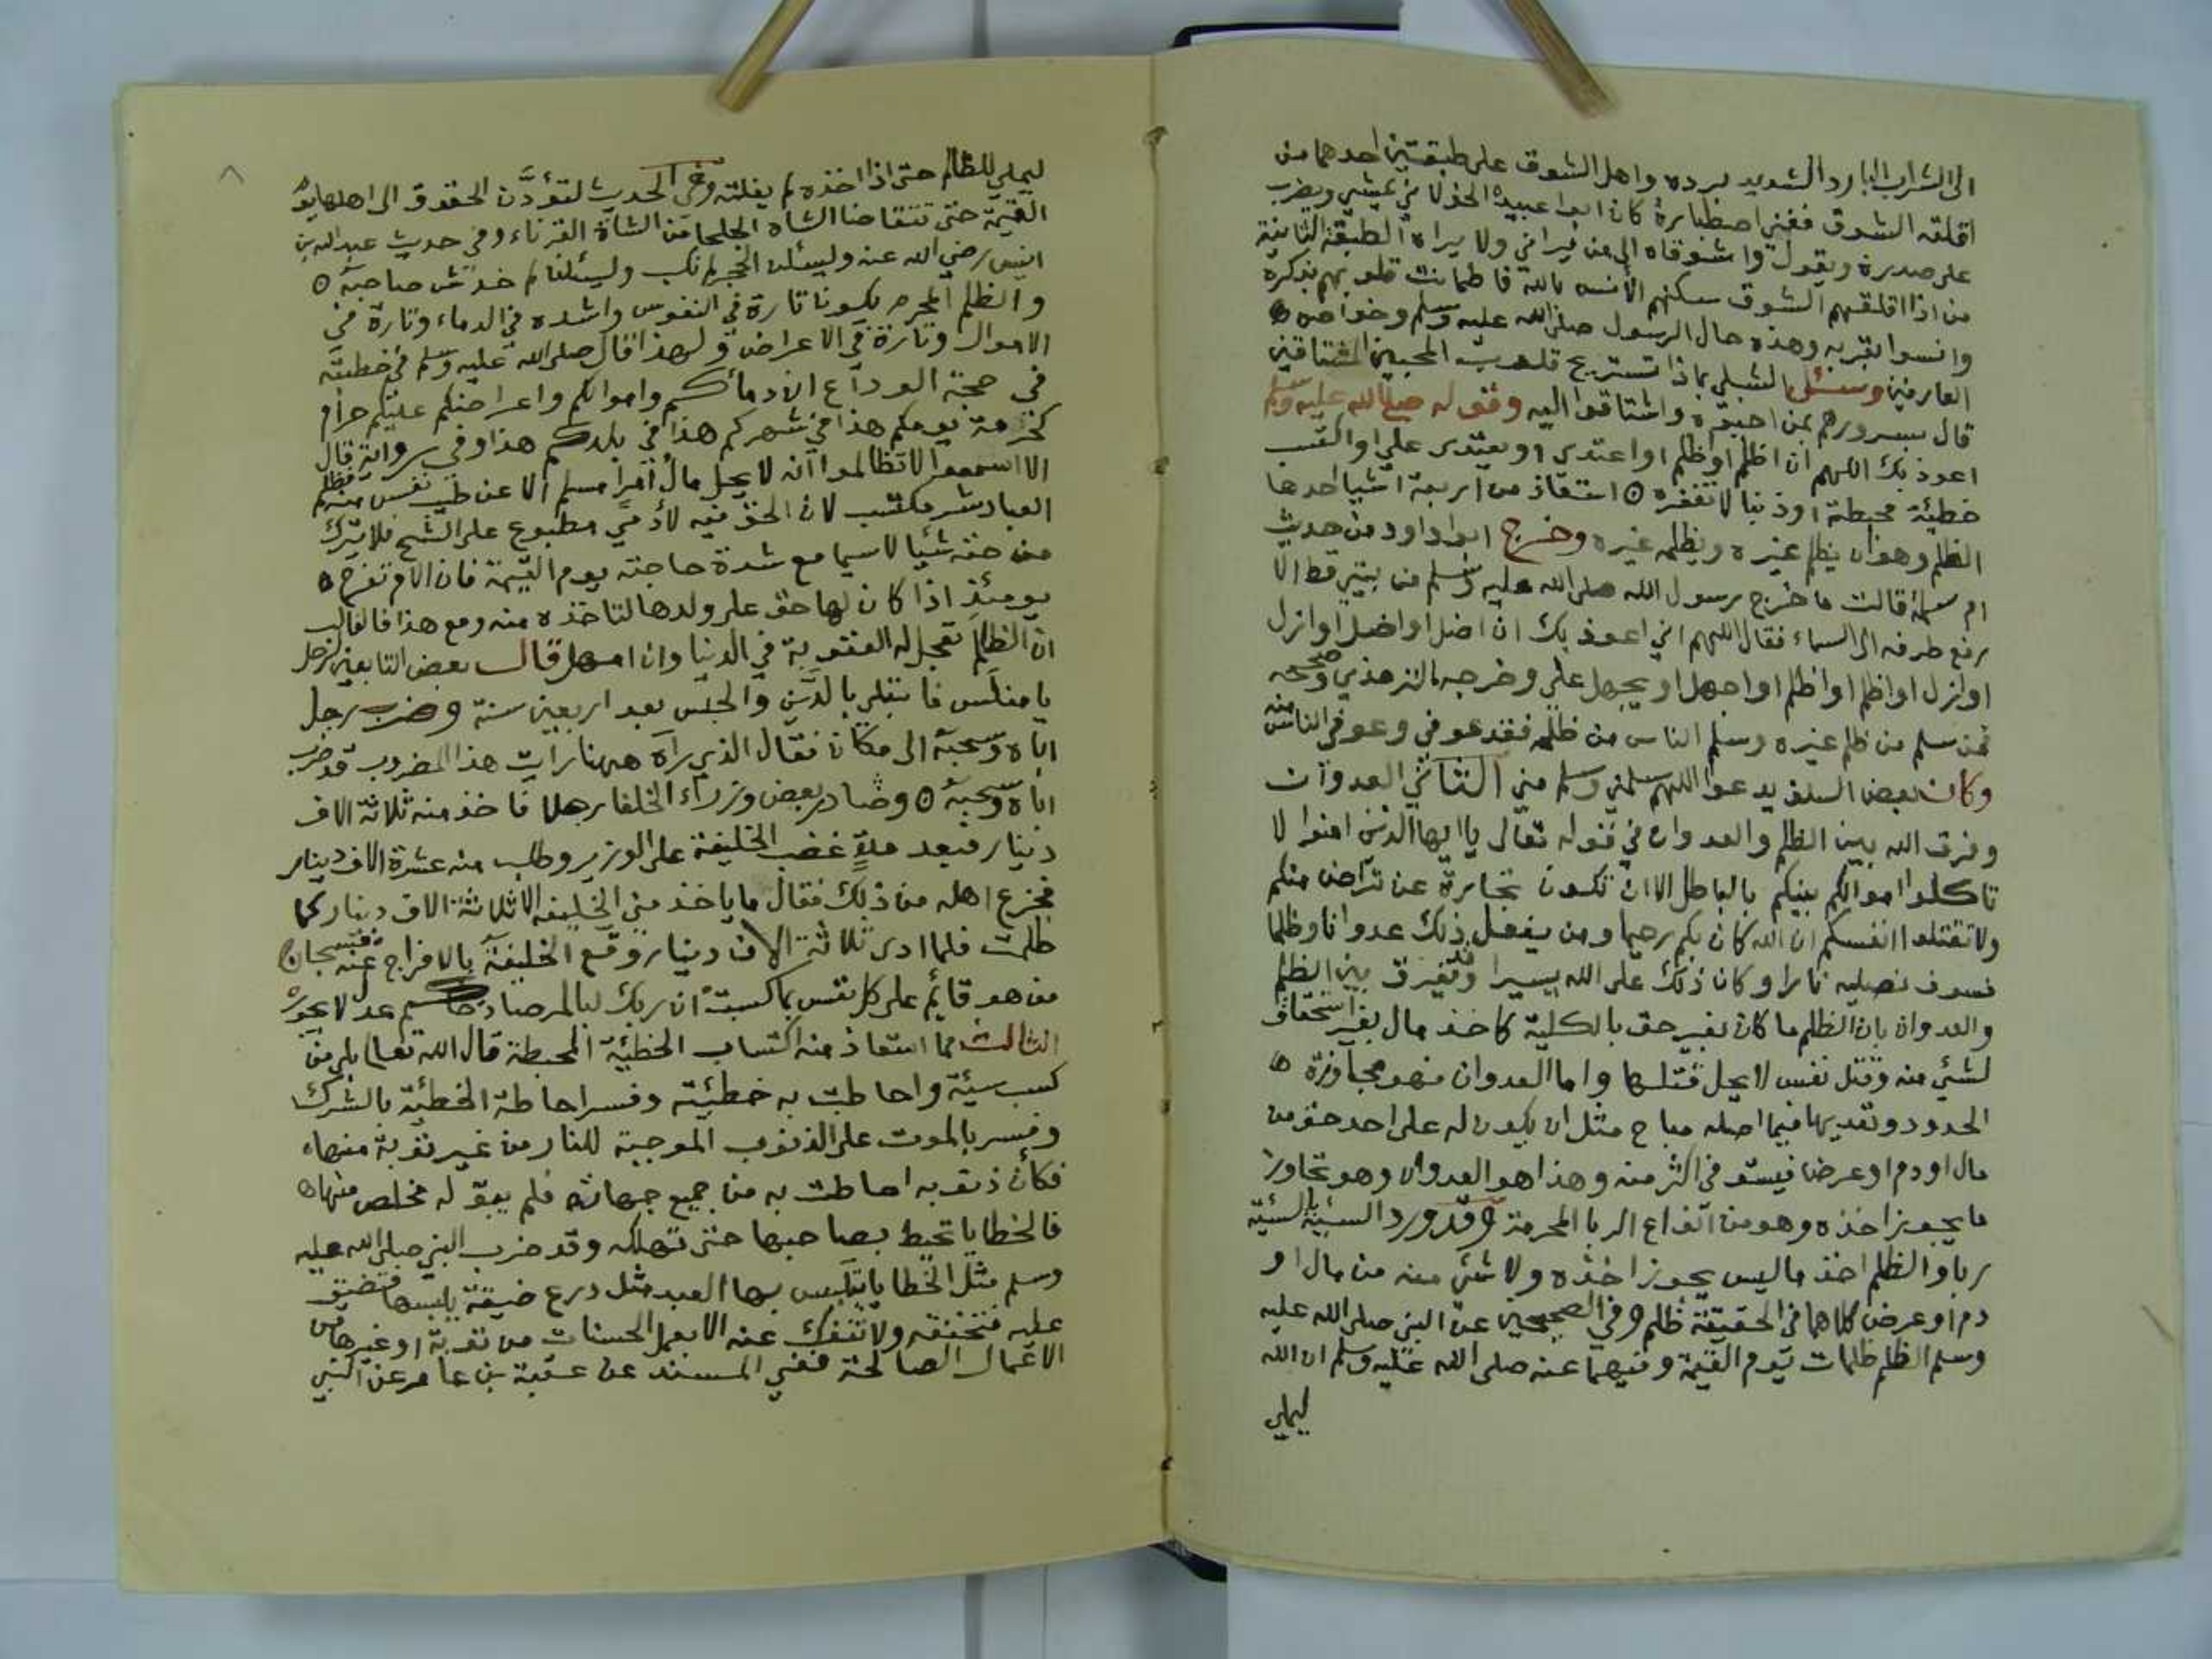 الى الشراب البارد الشديد برده واهل الشوق على طبقتين احدهما من
اقلقه الشوق ففني اصطباره كان ابوا عبيدة الخولاني يمشي ويضرب
على صدره ويقول واشوقاه الى من يراني ولا يراه الطبقة الثانية
من اذا اقلقهم الشوق سكنهم الانس بالله فاطمانت قلوبهم بذكره
وانسوا بقربه وهذه حال الرسول صلى الله عليه وسلم وخواصه
العارفين وسئل الشبلي بماذا تستريح قلوب المحبين المشتاقين
قال بسرورهم بمن احبوه واشتاقوا اليه وقوله صلى الله عليه وسلم
اعوذ بك اللهم ان اظلم او ظلم او اعتدي او يعتدى علي او اكتسب
خطيئة محبطة او ذنبا لا تغفره استعاذ من اربعة اشيا احدها
الظلم وهو ان يظلم غيره ويظلمه غيره وخرج ابوا داود من حديث
ام سلمة قالت ما خرج رسول الله صلى الله عليه وسلم من بيتي قط الا
رفع طرفه الى السماء فقال اللهم اني اعوذ بك ان اضل او اضل او ازل
او ازل او اظلم او اظلم او اجهل او يجهل علي وخرجه الترمذي وصححه
فمن سلم من ظلم غيره وسلم الناس من ظلمه فقد عوفي وعوفي الناس منه
وكان بعض السلف يدعوا اللهم سلمني وسلم مني الثاني العدوان
وفرق الله بين الظلم والعدوان في قوله تعالى يا ايها الذين امنوا لا
تاكلوا اموالكم بينكم بالباطل الا ان تكون تجارة عن تراض منكم
ولا تقتلوا انفسكم ان الله كان بكم رحيما ومن يفعل ذلك عدوانا وظلما
فسوف نصليه نارا وكان ذلك على الله يسيرا وقد يفرق بين الظلم
والعدوان بان الظلم ما كان بغير حق بالكلية كاخذ مال بغير استحقاق
لشئي منه وقتل نفس لا يحل قتلها واما العدوان فهو مجاوزة
الحدود وتعديها فيما اصله مباح مثل ان يكون له على احد حق من
مال او دم او عرض فيستوفي اكثر منه وهذا هو العدوان وهو تجاوز
ما يجوز اخذه وهو من انواع الربا المحرمة وقد ورد السيئة بالسيئة
ربا والظلم اخذ ما ليس يجوز اخذه ولا شئي منه من مال او
دم او عرض كلاهما في الحقيقة ظلم وفي الصحيحين عن النبي صلى الله عليه
وسلم الظلم ظلمات يوم القيمة وفيهما عنه صلى الله عليه وسلم ان الله
ليملي
٨
ليملي للظالم حتى اذا اخذه لم يفلته وفي الحديث لتؤدن الحقوق الى اهلها يوم
القيمة حتى تتقاضا الشاة الجلحا من الشاة القرناء وفي حديث عبد الله بن
انيس رضي الله عنه وليسئلن الحجر لم نكب وليسئلن لم خدش صاحبه
والظلم المحرم يكون تارة في النفوس واشده في الدماء وتارة في
الاموال وتارة في الاعراض ولهذا قال صلى الله عليه وسلم في خطبته
في حجة الوداع ان دمائكم واموالكم واعراضكم عليكم حرام
كحرمة يومكم هذا في شهركم هذا في بلدكم هذا وفي رواية قال
الا اسمعوا لا تظالموا انه لا يحل مال امرا مسلم الا عن طيب نفس منه فظلم
العباد شر مكتسب لان الحق فيه لادمي مطبوع على الشح فلا يترك
من حقه شئيا لا سيما مع شدة حاجته يوم القيمة فان الام تفرح
يومئذ اذا كان لها حق على ولدها لتاخذه منه ومع هذا فالغالب
ان الظالم تعجل له العقوبة في الدنيا وان امهل قال بعض التابعين لرجل
يا مفلس فابتلي بالدين والحبس بعد اربعين سنة وضرب رجل
اباه وسحبه الى مكان فقال الذي راه ههنا رايت هذا المضروب قد ضرب
اباه وسحبه وصادر بعض وزراء الخلفا رجلا فاخذ منه ثلاثة الاف
دينار فبعد مدة غضب الخليفة على الوزير وطلب منه عشرة الاف دينار
فجزع اهله من ذلك فقال ما ياخذ مني الخليفة الا ثلاثة الاف دينار كما
ظلمت فلما ادى ثلاثة الاف دينار وقع الخليفة بالافراج عنه فسبحان
من هو قائم على كل نفس بما كسبت ان ربك لبالمرصاد حاكم عدل لا يجور
الثالث مما استعاذ منه اكتساب الخطيئة المحبطة قال الله تعالى بلى من
كسب سيئة واحاطت به خطيئته وفسر احاطة الخطيئة بالشرك
وفسر بالموت على الذنوب الموجبة للنار من غير توبة منها
فكأن ذنوبه احاطت به من جميع جهاته فلم يبق له مخلص منها
فالخطايا تحيط بصاحبها حتى تهلكه وقد ضرب النبي صلى الله عليه
وسلم مثل الخطايا يتلبس بها العبد مثل درع ضيقة يلبسها فتضيق
عليه فتخنقه ولا تنفك عنه الا بعمل الحسنات من توبة او غيرها من
الاعمال الصالحة ففي المسند عن عقبة بن عامر عن النبي